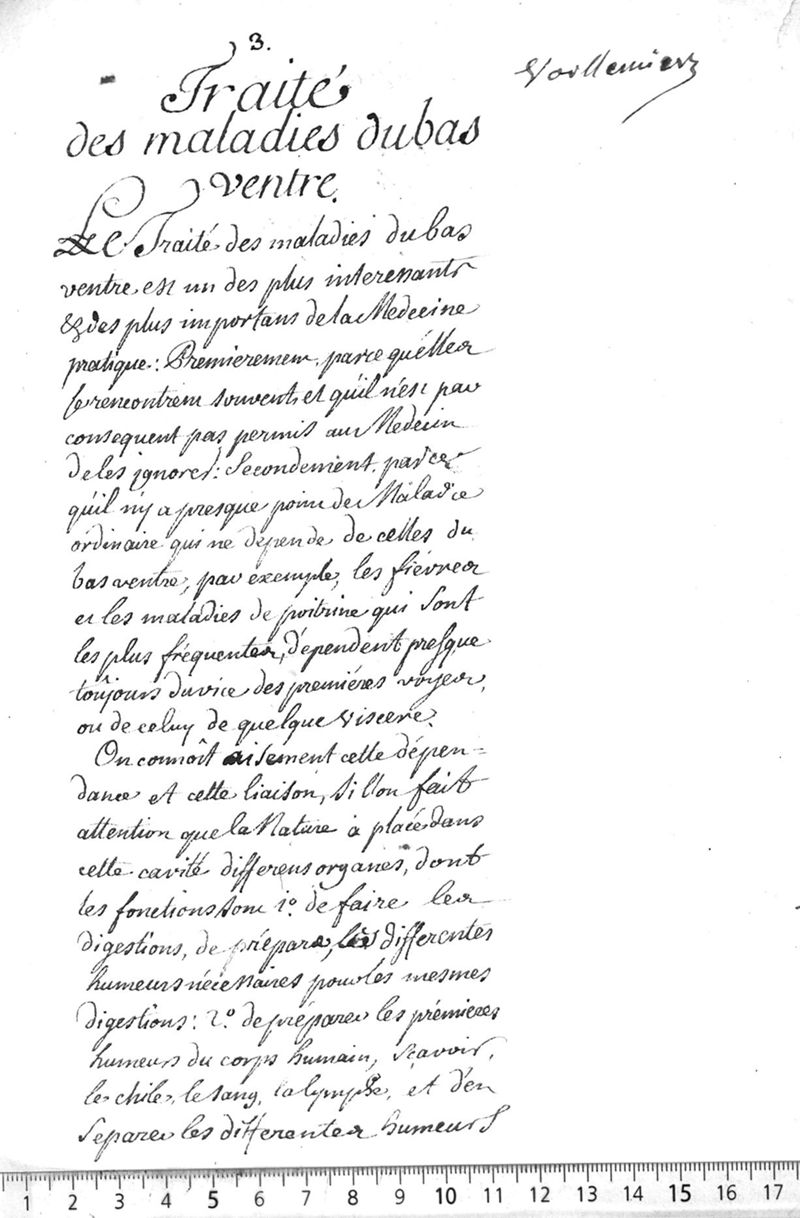 3.
Traité
des maladies du bas
ventre.
Voillemier
Le Traité des maladies du bas
ventre est un des plus interessants
& des plus importans de la Medecine
pratique: Premierement, parce qu'elles
se rencontrent souvent, et qu'il n'est par
consequent pas permis au Medecin
de les ignorer: Secondement, parce
qu'il n'y a presque point de Maladie
ordinaire qui ne dépende de celles du
bas ventre, par exemple, les fiévres
et les maladies de poitrine qui sont
les plus fréquentes, dépendent presque
toûjours du vice des premiéres voyes,
ou de celuy de quelque viscere.
On connoît aisement cette dépen=
dance et cette liaison, si l'on fait
attention que la Nature a placé dans
cette cavité differens organes, dont
les fonctions sont 1.º de faire les
digestions, de préparer les differentes
humeurs nécessaires pour les mesmes
digestions: 2.º de préparer les prémieres
humeurs du corps humain, sçavoir,
le chile, le sang, la lymphe, et d'en
separer les differentes humeurs
1 2 3 4 5 6 7 8 9 10 11 12 13 14 15 16 17